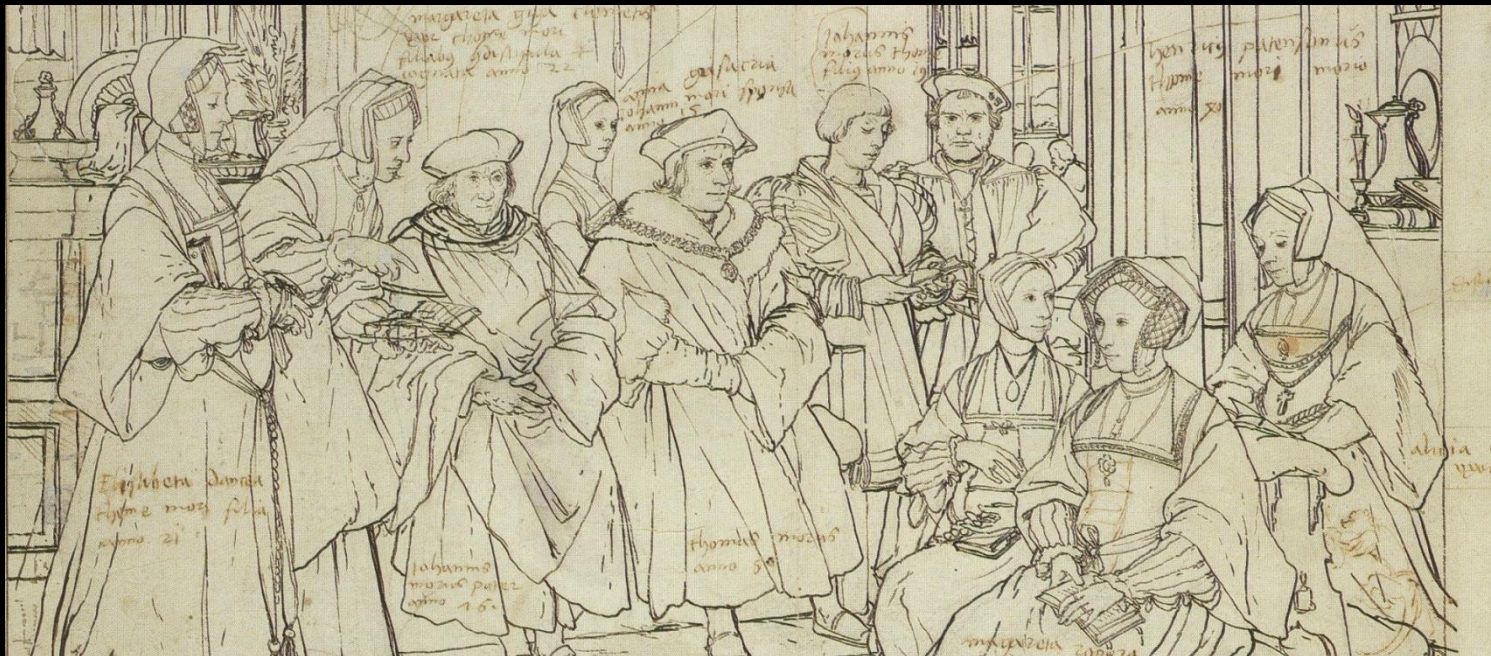 margareta giga clementis
uxor thomae mori
filiabus condiscipula &
cognata anno 22
anna grisacria
Johanni mori sponsa
anno 15
Johannis
morus thomae
filius anno 19
henricus patensonus
thome mori morio
anno 40
Elisabeta dancea
thome mori filia
anno 21
Johannis
morus pater
anno 76
thomas morus
anno 50
alicia
margareta ropera